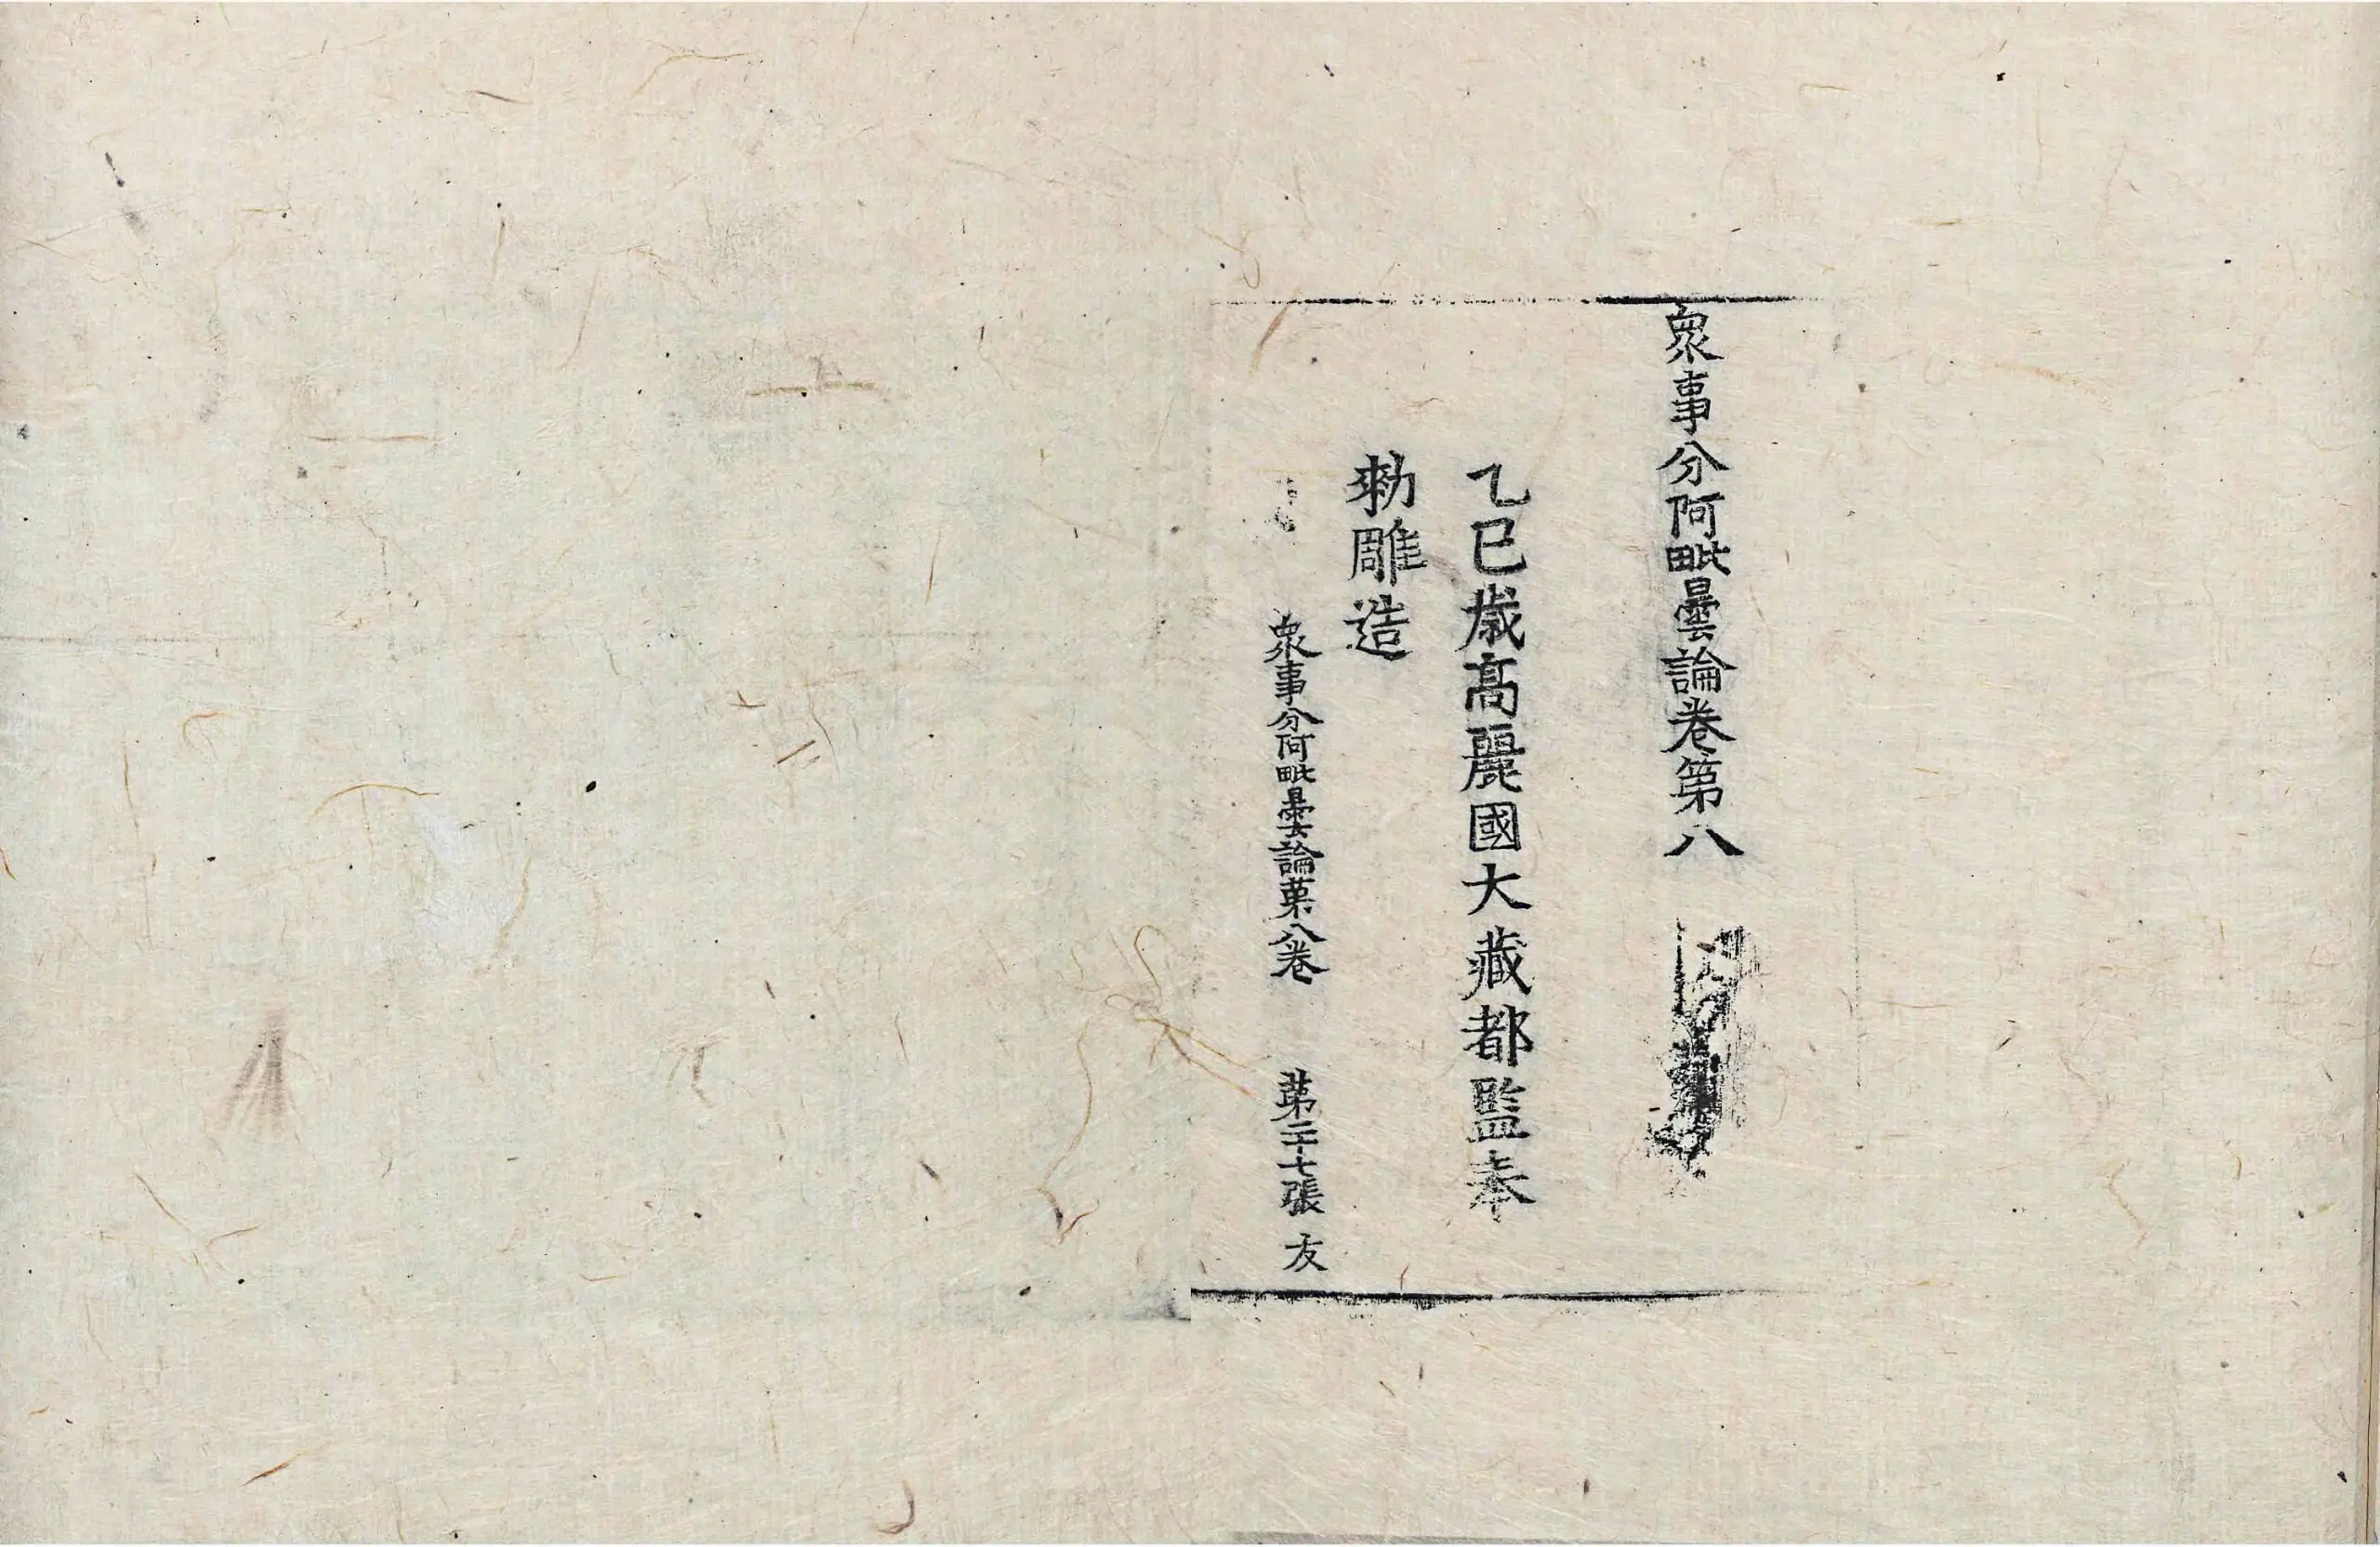 衆事分阿毗曇論卷第八
乙巳歲高麗國大藏都監奉
勑雕造
衆事分阿毗曇論苐八卷 苐二十七張 友